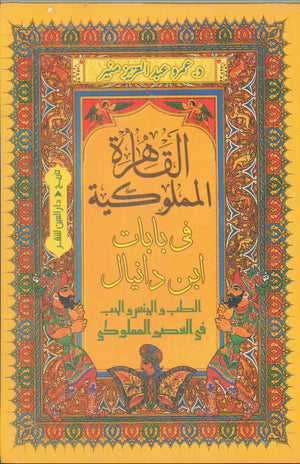 د. عمرو عبد العزيز منير
القاهرة
المملوكية
فى بابات
ابن دانيال
الطب والجنس والحب
في العصر المملوكي
تاريخ دار العين للنشر